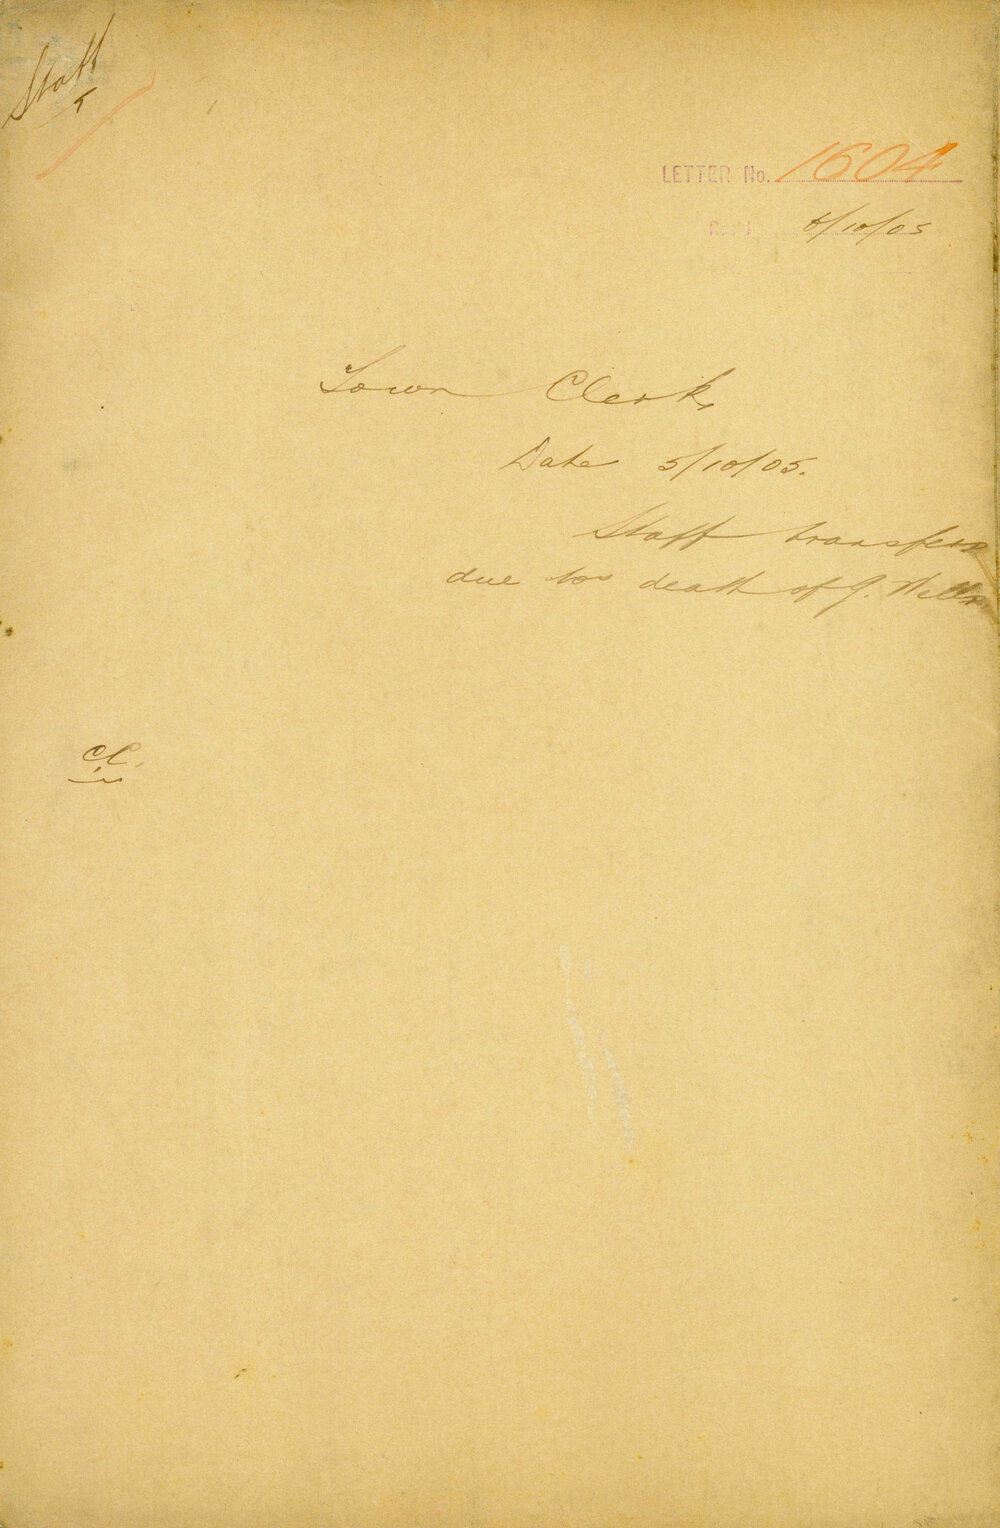 Staff
LETTER No. 1604
Rec'd 6/10/05
Town Clerk,
Date 5/10/05.
Staff transfers
due to death of J. Wells.